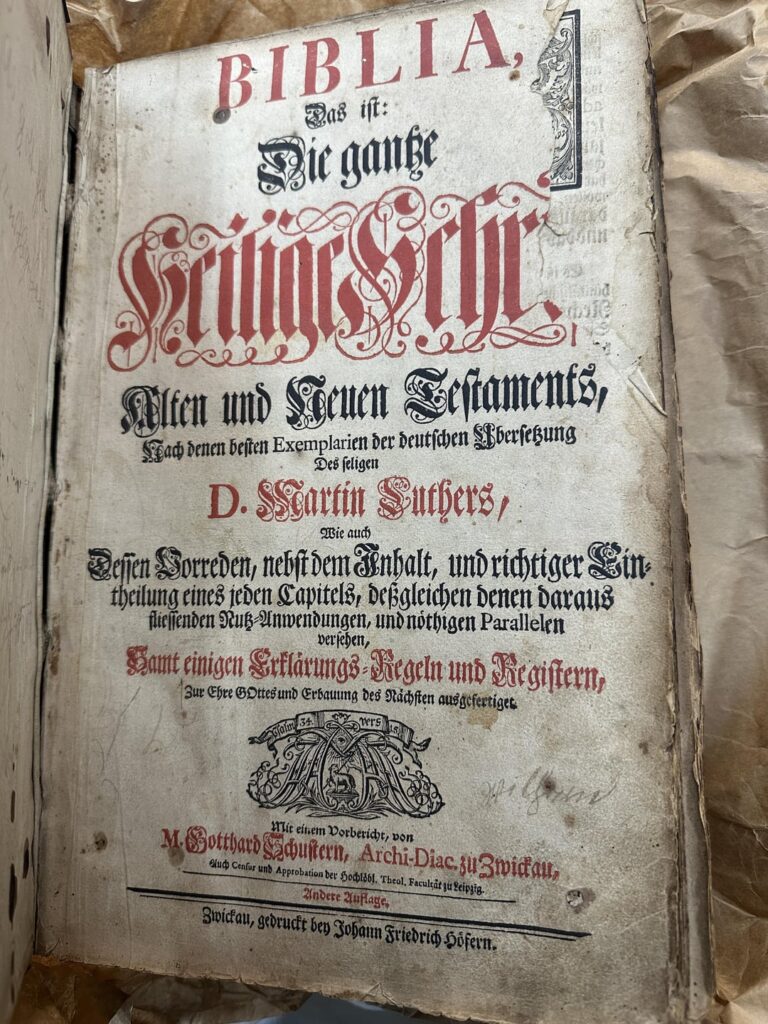 BIBLIA,
Das ist:
Die gantze
Heilige Schr.
Alten und Neuen Testaments,
Nach denen besten Exemplarien der deutschen Ubersetzung
Des seligen
D. Martin Luthers,
Wie auch
Dessen Vorreden, nebst dem Inhalt, und richtiger Ein-
theilung eines jeden Capitels, deßgleichen denen daraus
fliessenden Nutz-Anwendungen, und nöthigen Parallelen
versehen,
Samt einigen Erklärungs-Regeln und Registern,
Zur Ehre GOttes und Erbauung des Nächsten ausgefertiget.
Psalm 34. vers
Mit einem Vorbericht, von
M. Gotthard Schustern, Archi-Diac. zu Zwickau,
Auch Censur und Approbation der Hochlöbl. Theol. Facultät zu Leipzig.
Andere Auflage,
Zwickau, gedruckt bey Johann Friedrich Höfern.